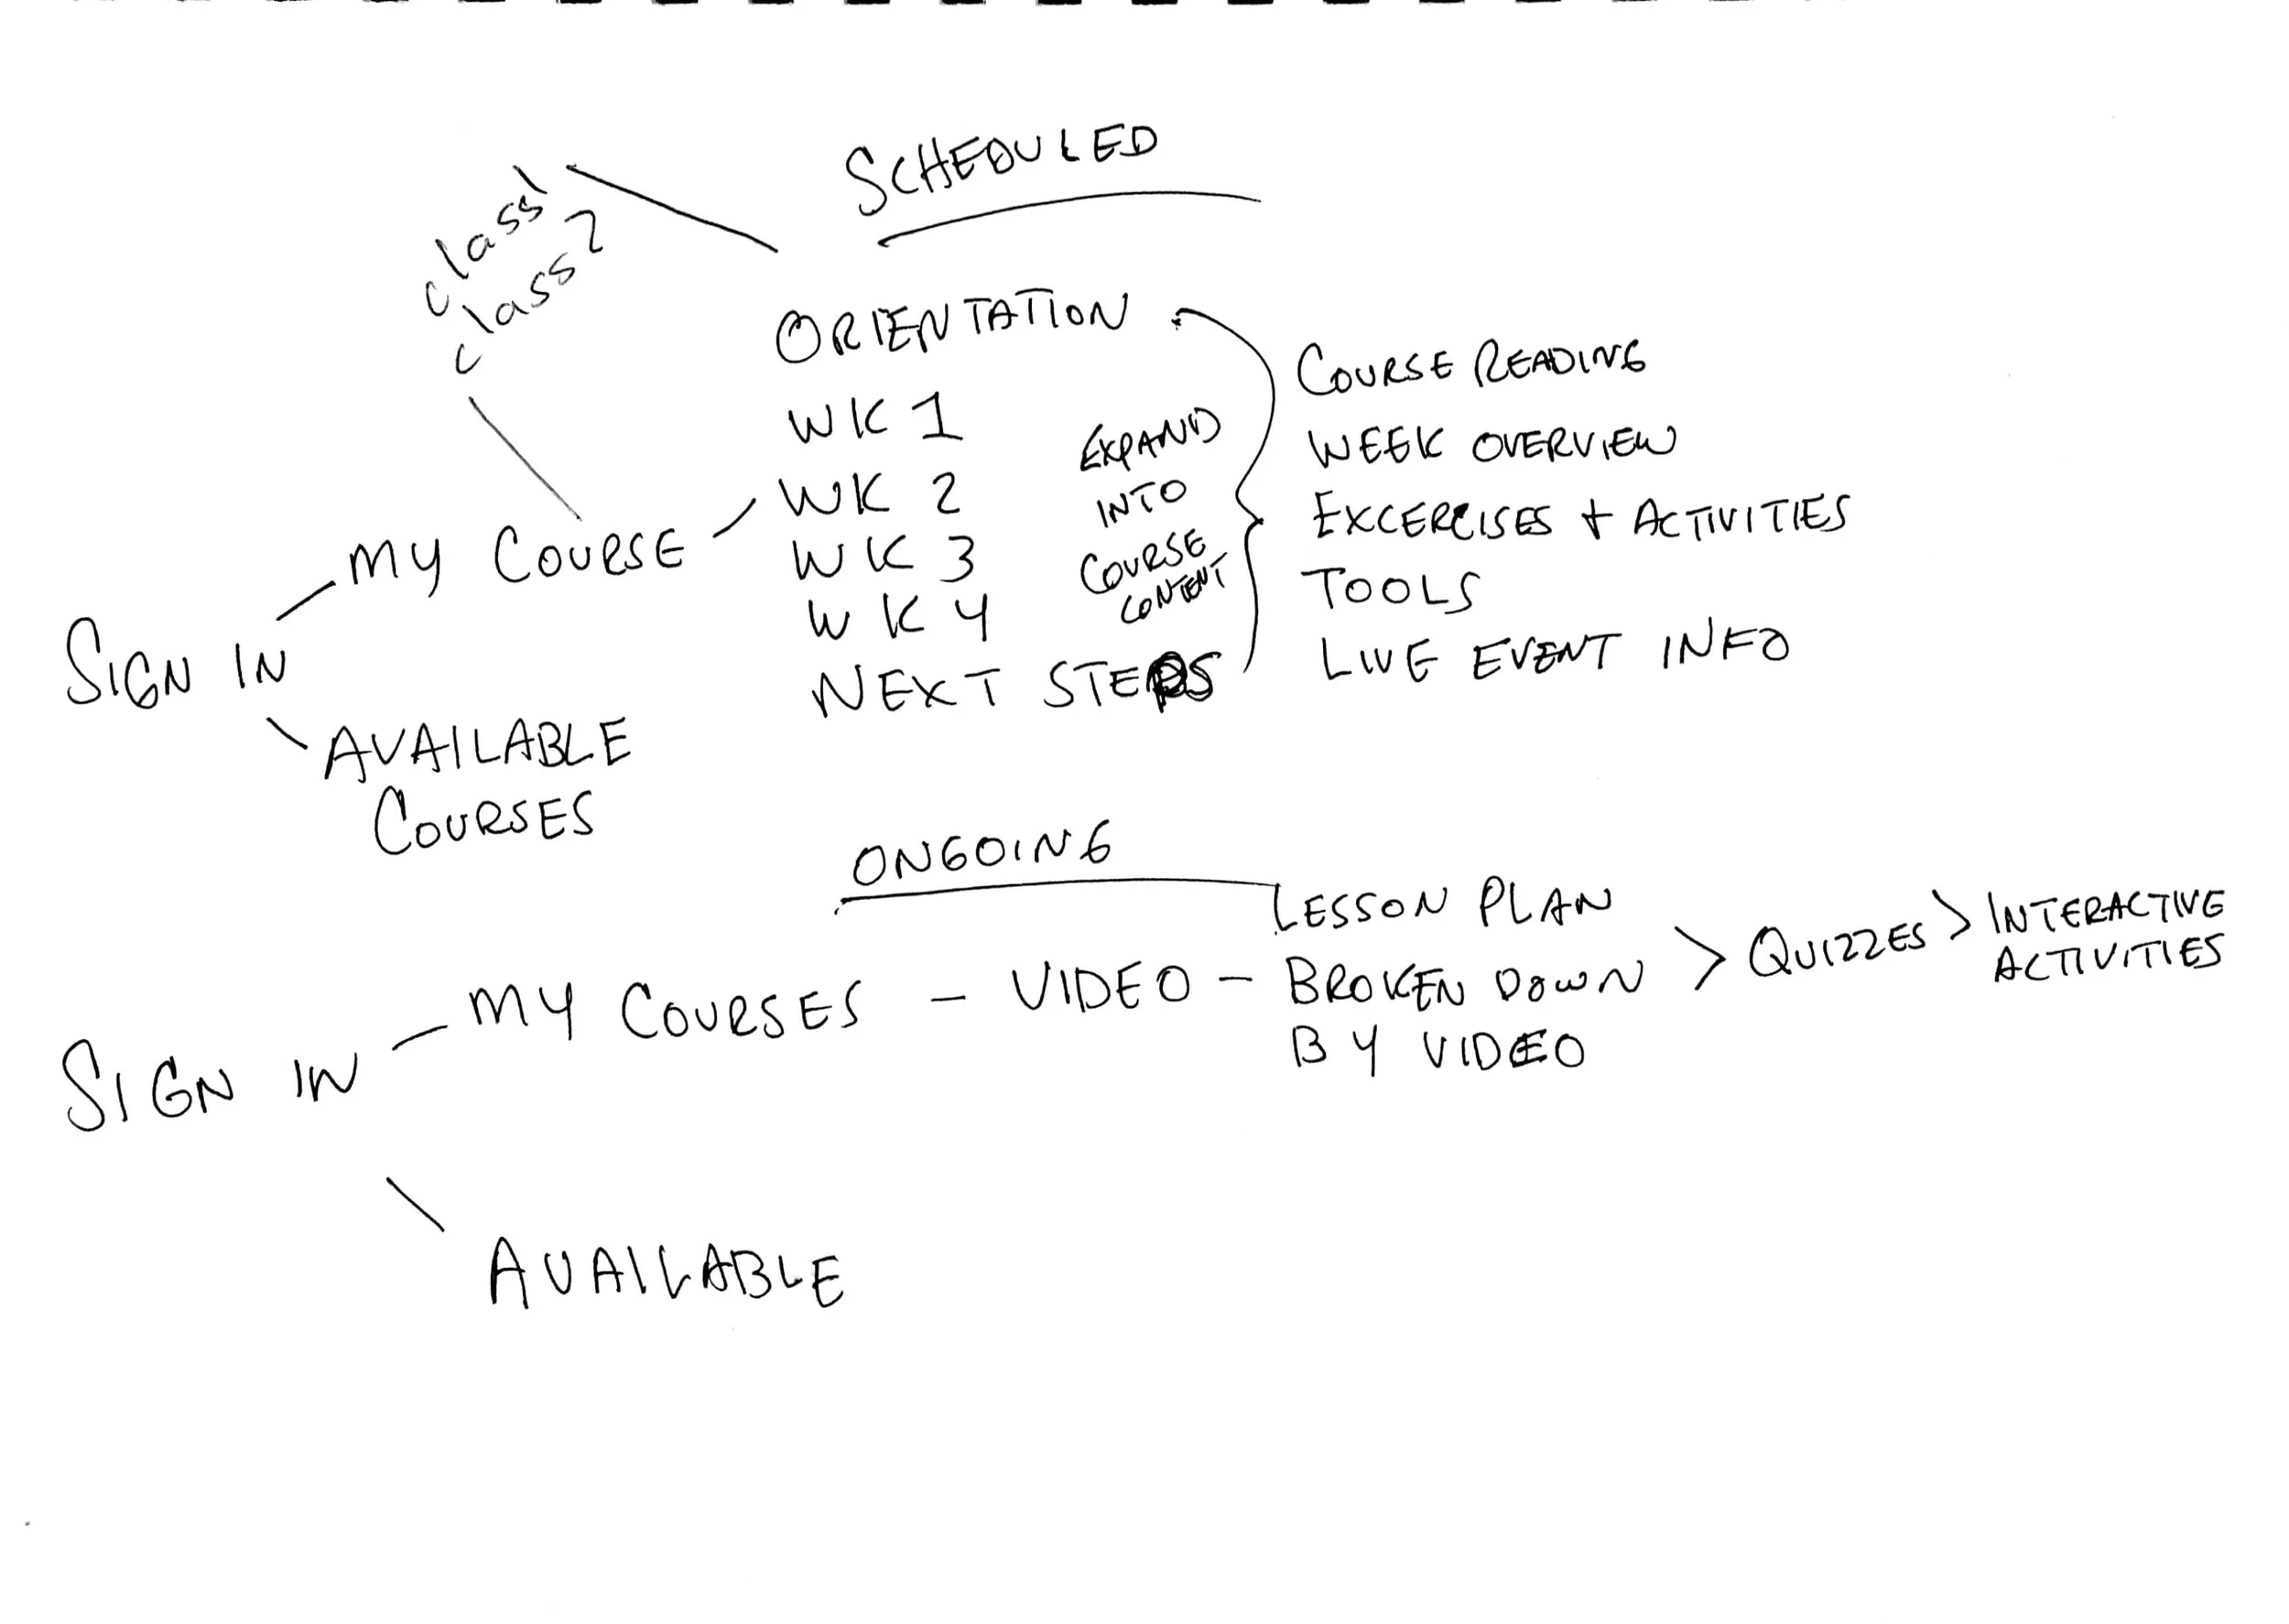 SCHEDULED
class 1
class 2
ORIENTATION
WK 1
WK 2
WK 3
WK 4
NEXT STEPS
EXPAND
INTO
COURSE
CONTENT
COURSE READING
WEEK OVERVIEW
EXCERCISES + ACTIVITIES
TOOLS
LIVE EVENT INFO
MY COURSE
SIGN IN
AVAILABLE
COURSES
ONGOING
SIGN IN
MY COURSES - VIDEO -
LESSON PLAN
BROKEN DOWN
BY VIDEO
> QUIZZES >
INTERACTIVE
ACTIVITIES
AVAILABLE